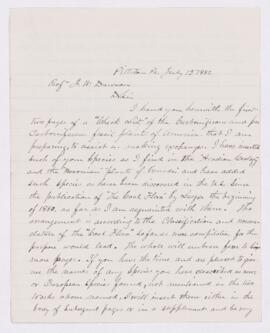 Pittston Pa. July 12 1882
Prof J. W. Dawson
D. Sir
I hand you herewith the first
two pages of a "Check List" of the Carboniferous and pre
Carboniferous fossil plants of America that I am
preparing to assist in making exchanges. I have inserted
such of your species as I find in the Acadian Geology
and the Devonian plants of Canada and have added
such species as have been discovered in the U.S. Since
the publication of "The Coal Flora" by Lesqx. the beginning
of 1880, as far as I am acquainted with them. The
arrangement is according to the classification and nomen
clature of the "Coal Flora" as far as
purpose would lead. The whole will embrace from
more pages. If you have the time and are pleased to give
me the names of any species you have described as new
or European species found, not mentioned in the two
works above named, I will insert them either in the
body of subsequent pages or in a supplement and be very